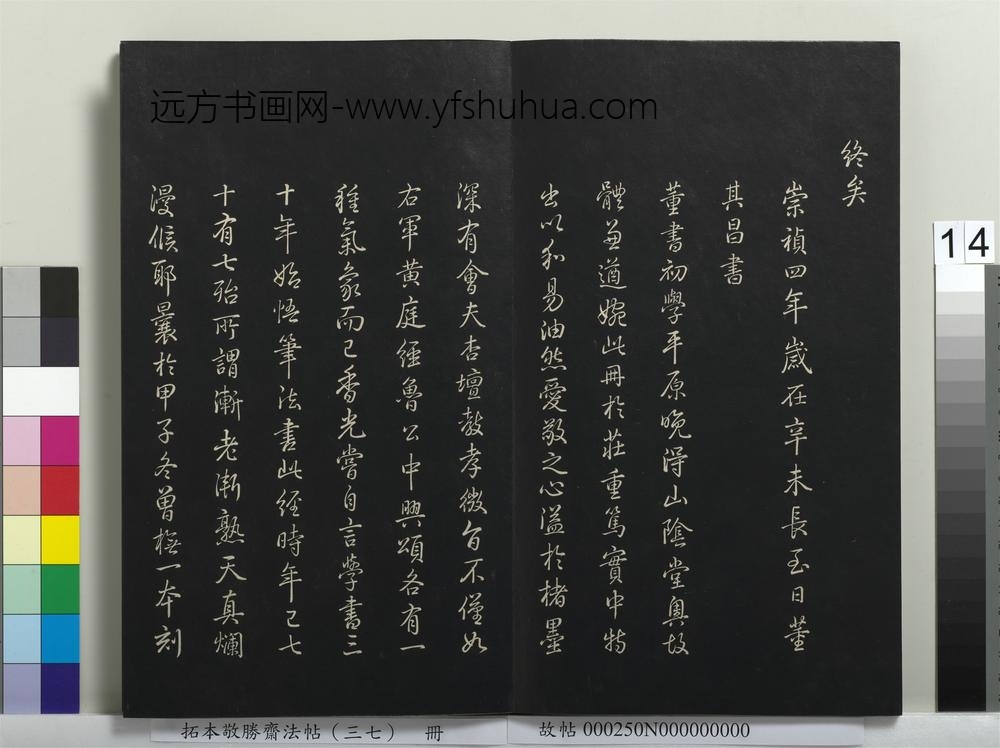 远方书画网-www.yfshuhua.com
終矣
崇禎四年歲在辛未長至日董
其昌書
董書初學平原晚得山陰堂奧故
體兼遒婉此冊於莊重篤實中特
出以和易油然愛敬之心溢於楮墨
深有會夫杏壇教孝微旨不僅如
右軍黃庭經魯公中興頌各有一
種氣象而已香光嘗自言學書三
十年始悟筆法書此經時年已七
十有七殆所謂漸老漸熟天真爛
漫候耶曩於甲子冬曾橅一本刻
14
拓本敬勝齋法帖(三七) 冊
故帖 000250N000000000